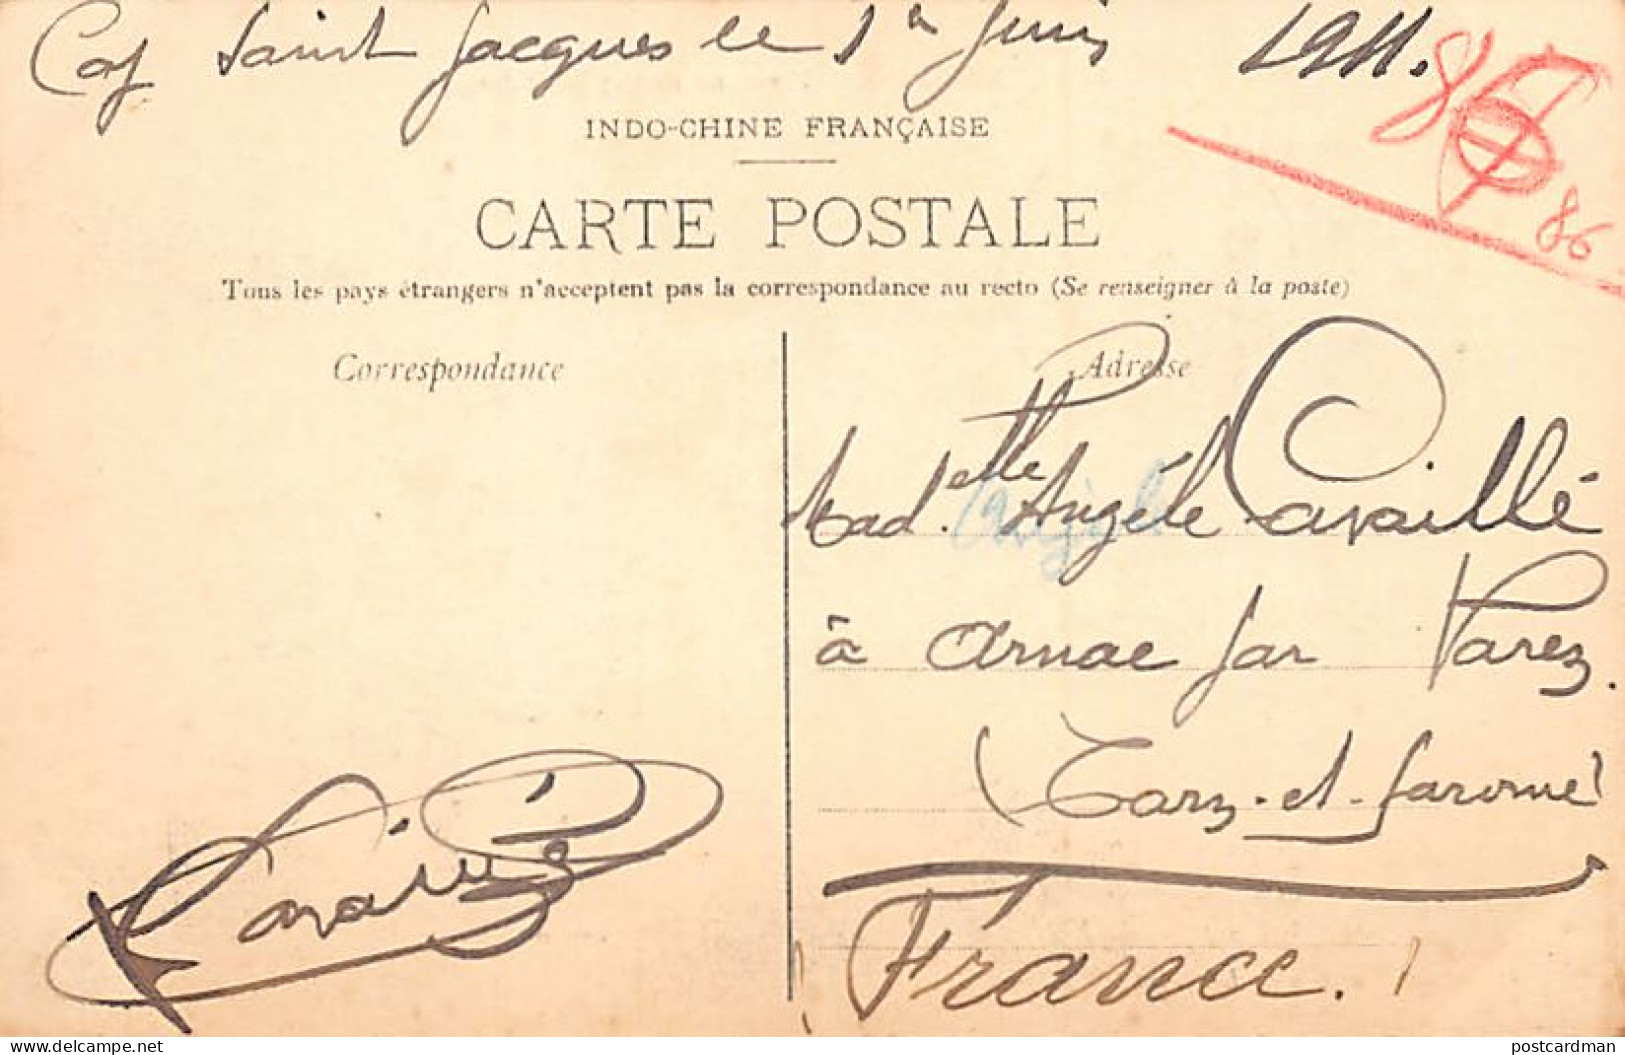 Cap Saint Jacques le 1er Juin 1911.
86
INDO-CHINE FRANÇAISE
CARTE POSTALE
86
Tous les pays étrangers n'acceptent pas la correspondance au recto (Se renseigner à la poste)
Correspondance
Adresse
Mad.elle Angèle Cavaillé
à Arnac par Varez.
(Tarn-et-Garonne)
France.
www.delcampe.net
postcardman